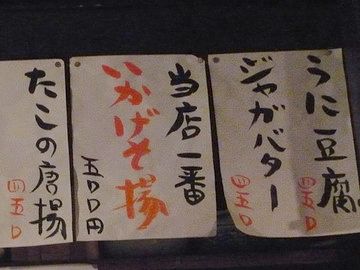 うに豆腐
四五〇
ジャガバター
四五〇
当店一番
いかげそ揚
五〇〇円
たこの唐揚
四五〇